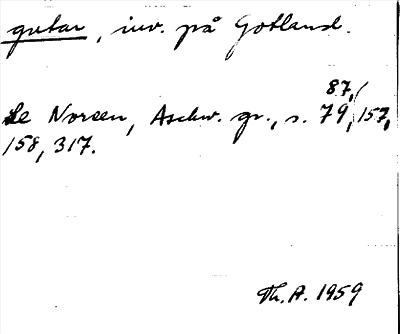 gutar, inv. på Gotland.
Se Noreen, Aschw. gr., s. 79, 87, 157,
158, 317.
Th. A. 1959